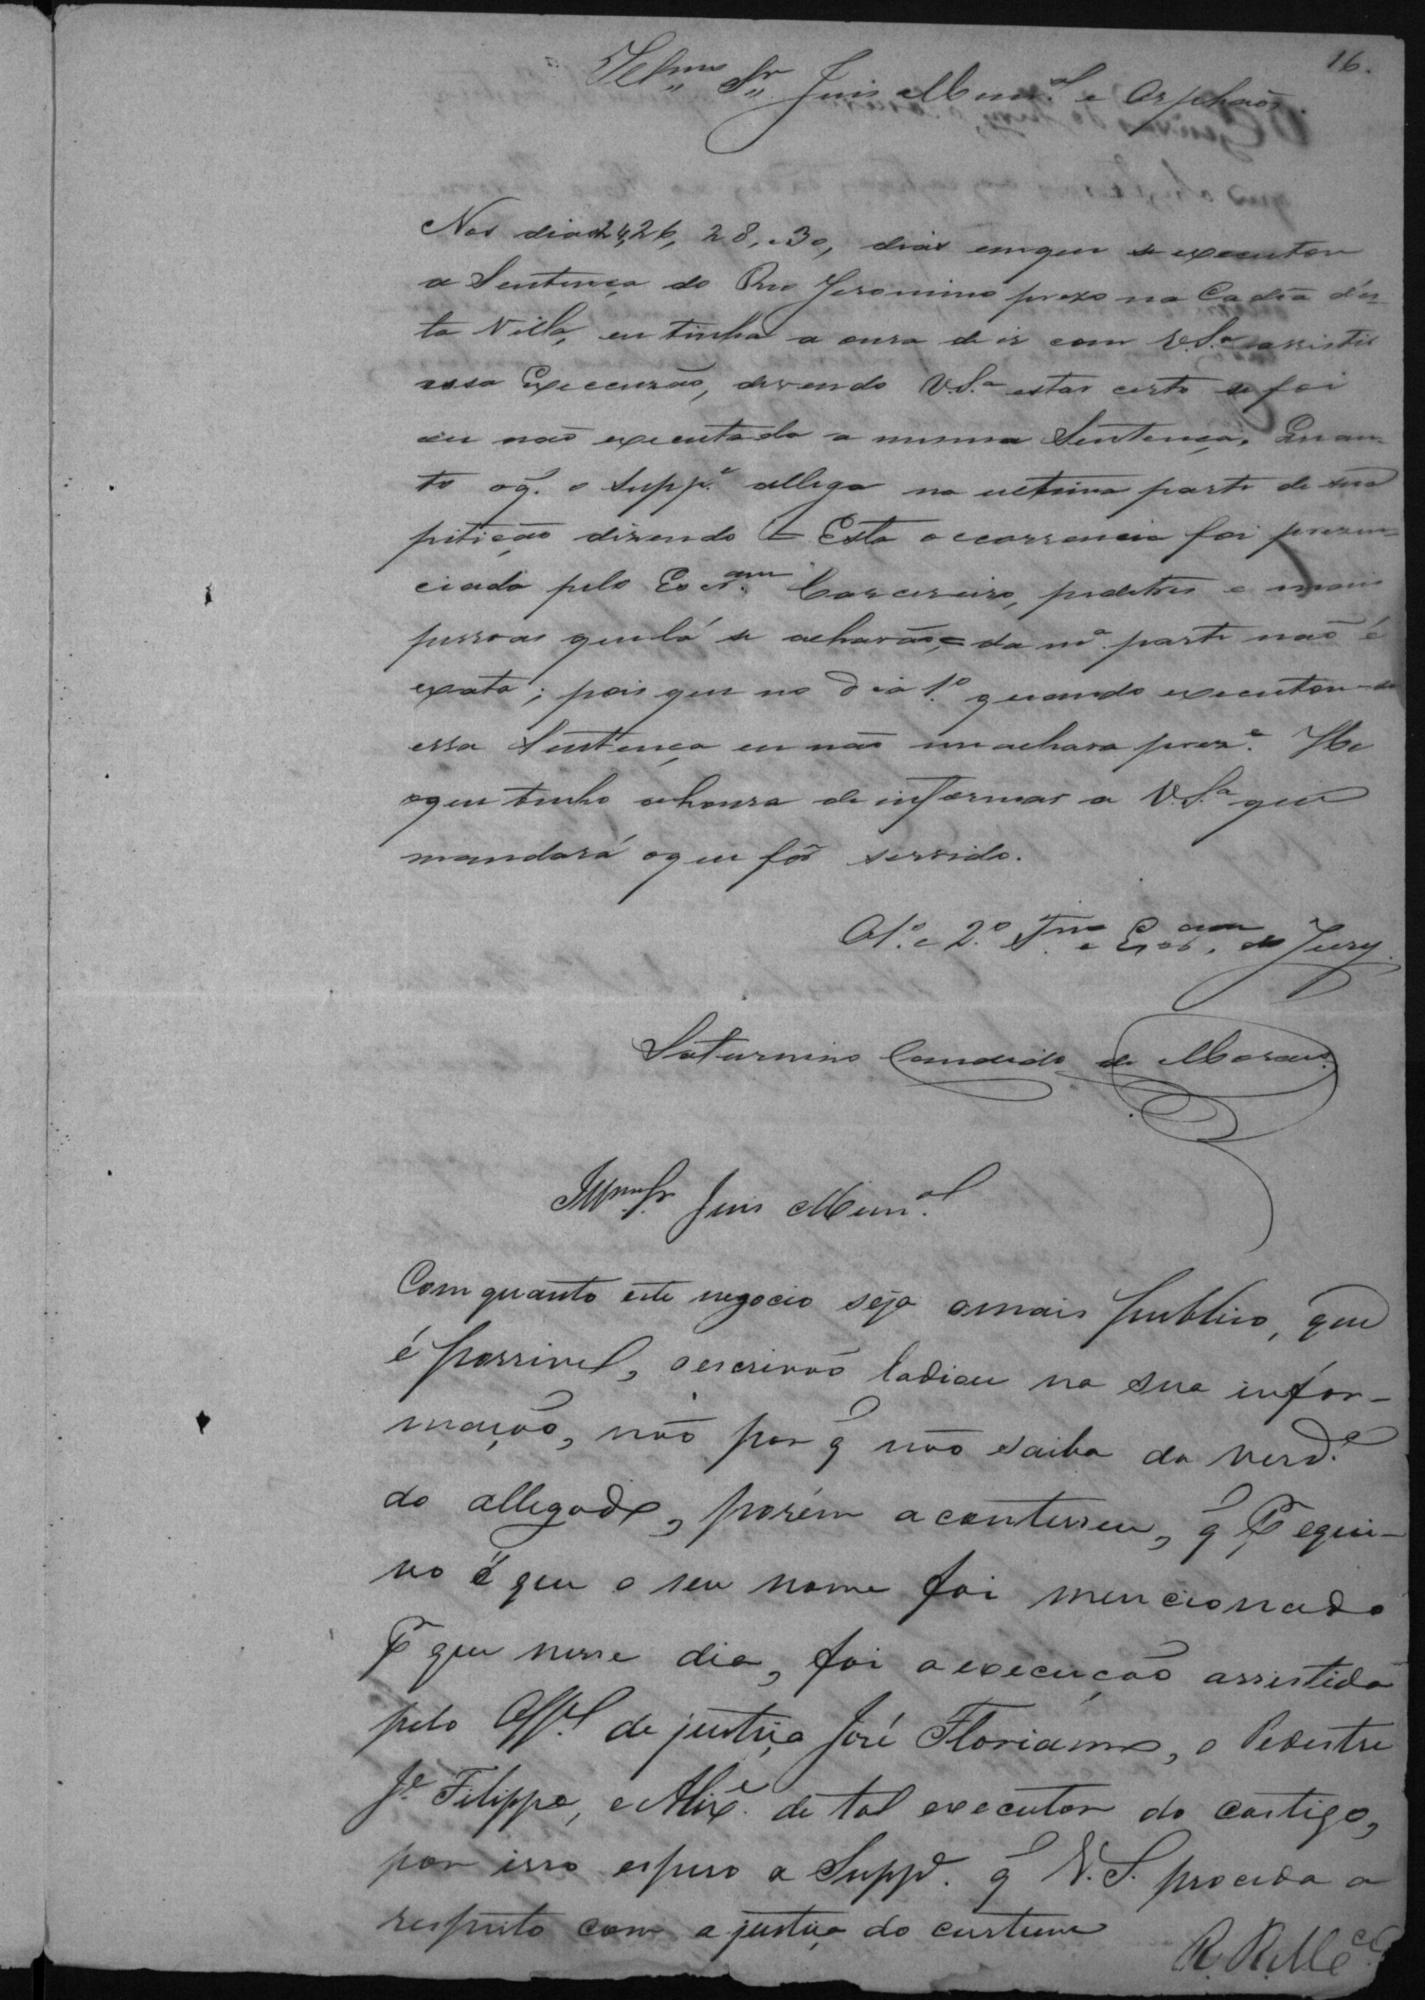 16.
Illmo Sr. Juis Munal. e Orphaõs.
Nos dias 24, 26, 28, e 30, dias emque se executou
a Sentença do Reo Jeronimo prezo na Cadêa d'es-
ta Villa, eu tinha a onra de ir com V.S.ª assistir
essa Execussão, devendo V.S.ª estar certo se foi
ou não executada a mesma Sentença. Quan-
to oq̃. o Suppe. allega na ultima parte de sua
pitição dizendo = Esta occorrencia foi prezen-
ciada pelo Escram. Carcereiro, pedestres e mais
pessoas que lá se acharão, = da mª. parte não é
exata; pois que no dia 1.º quando executou-se
essa Sentença eu não me achava preze. He
oque tenho a honra de informar a V.S.ª que
mandará oque fôr servido.
O 1.º e 2.º Tam. e Escram. do Jury.
Saturnino Candido de Moraes.
Illmo Sr. Juis Munal.
Com quanto este negocio seja o mais publico, que
é possivel, o escrivão ladiou na sua infor-
mação, não por q̃ não saiba da verde.
do allegado, porém aconteceu, q̃ P equi-
vo é que o seu nome foi mencionado
P que nesse dia, foi a execução assistida
pelo Offal de justiça José Floriano, o Pedestre
Je. Filippe, e Alixe. de tal executor do castigo,
por isso espera a Suppe. q̃ V.S. proceda a
respeito com a justiça do custume
R. R. Mce.